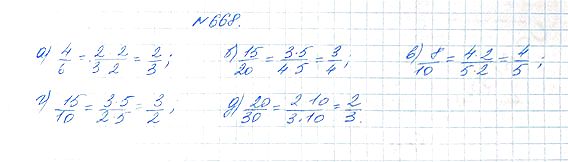 №668.
а) 4/6 = 2 2/3 2 = 2/3; б) 15/20 = 3·5/4 5 = 3/4; в) 8/10 = 4·2/5·2 = 4/5;
г) 15/10 = 3·5/2·5 = 3/2; д) 20/30 = 2·10/3·10 = 2/3.